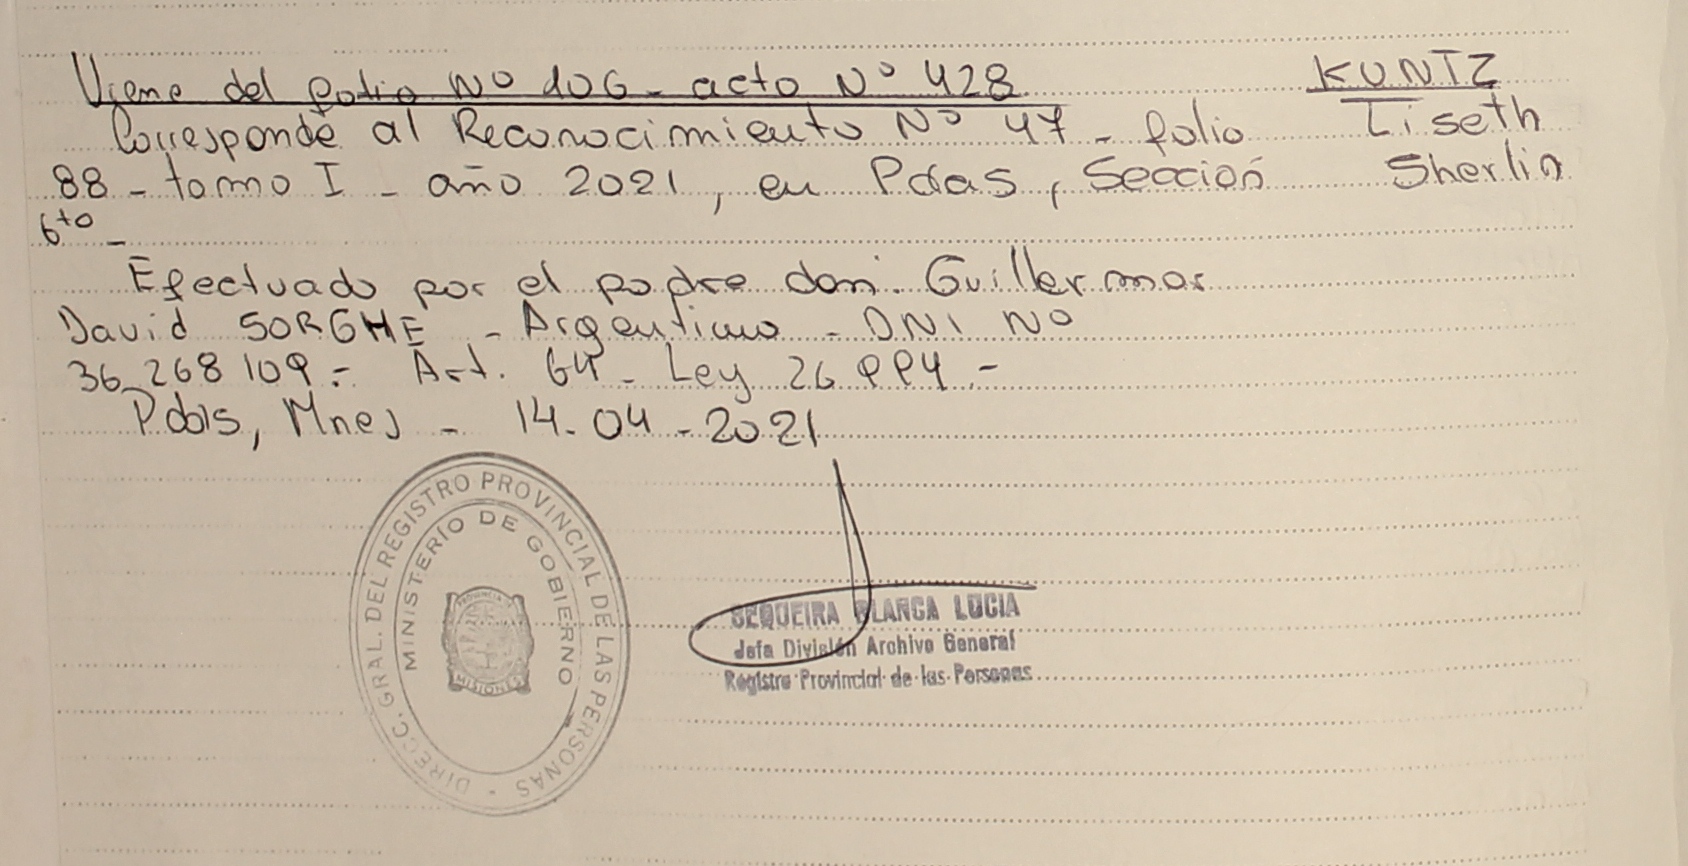 Viene del folio Nº 106 - acto Nº 428
KUNTZ
Corresponde al Reconocimiento Nº 47 - folio
Liseth
88 - tomo I - año 2021, en Pdas, Sección
Sherlin
6to -
Efectuado por el padre don: Guillermos
David SORGHE - Argentino - DNI Nº
36.268 109 - Art. 64 - Ley 26 994 -
Pdas, Mnes - 14-04-2021
DIRECC. GRAL. DEL REGISTRO PROVINCIAL DE LAS PERSONAS -
MINISTERIO DE GOBIERNO
PROVINCIA DE
MISIONES
SEQUEIRA BLANCA LUCIA
Jefa División Archivo General
Registro Provincial de las Personas